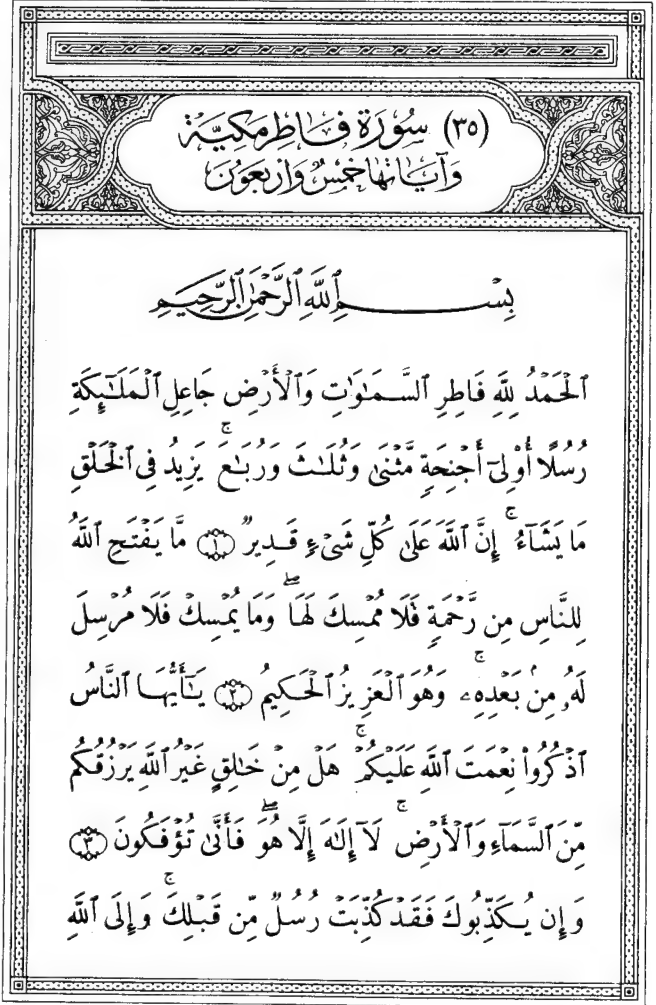 (٣٥) سُورَة فَاطِر مَكِيَّة
وَآيَاتهَا خَمْسٌ وَأَرْبَعُونَ
بِسْمِ ٱللَّهِ ٱلرَّحْمَٰنِ ٱلرَّحِيمِ
ٱلْحَمْدُ لِلَّهِ فَاطِرِ ٱلسَّمَٰوَٰتِ وَٱلْأَرْضِ جَاعِلِ ٱلْمَلَٰٓئِكَةِ
رُسُلًا أُوْلِىٓ أَجْنِحَةٍ مَّثْنَىٰ وَثُلَٰثَ وَرُبَٰعَ ۚ يَزِيدُ فِى ٱلْخَلْقِ
مَا يَشَآءُ ۚ إِنَّ ٱللَّهَ عَلَىٰ كُلِّ شَىْءٍ قَدِيرٌ ۝١ مَّا يَفْتَحِ ٱللَّهُ
لِلنَّاسِ مِن رَّحْمَةٍ فَلَا مُمْسِكَ لَهَا ۖ وَمَا يُمْسِكْ فَلَا مُرْسِلَ
لَهُۥ مِنۢ بَعْدِهِۦ ۚ وَهُوَ ٱلْعَزِيزُ ٱلْحَكِيمُ ۝٢ يَٰٓأَيُّهَا ٱلنَّاسُ
ٱذْكُرُواْ نِعْمَتَ ٱللَّهِ عَلَيْكُمْ ۚ هَلْ مِنْ خَٰلِقٍ غَيْرُ ٱللَّهِ يَرْزُقُكُم
مِّنَ ٱلسَّمَآءِ وَٱلْأَرْضِ ۚ لَآ إِلَٰهَ إِلَّا هُوَ ۖ فَأَنَّىٰ تُؤْفَكُونَ ۝٣
وَإِن يُكَذِّبُوكَ فَقَدْ كُذِّبَتْ رُسُلٌ مِّن قَبْلِكَ ۚ وَإِلَى ٱللَّهِ